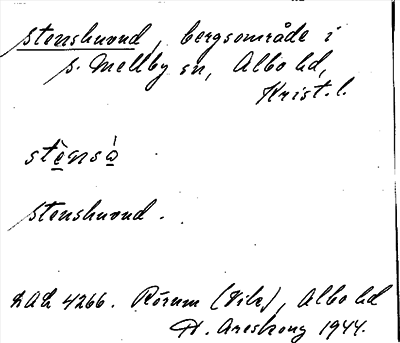 Stenshuvud, bergsområde i
S. Mellby sn, Albo hd,
Krist. l.
stensa
Stenshuvud.
LAL 4266. Rörum (Vik), Albo hd
H. Areskoug 1944.